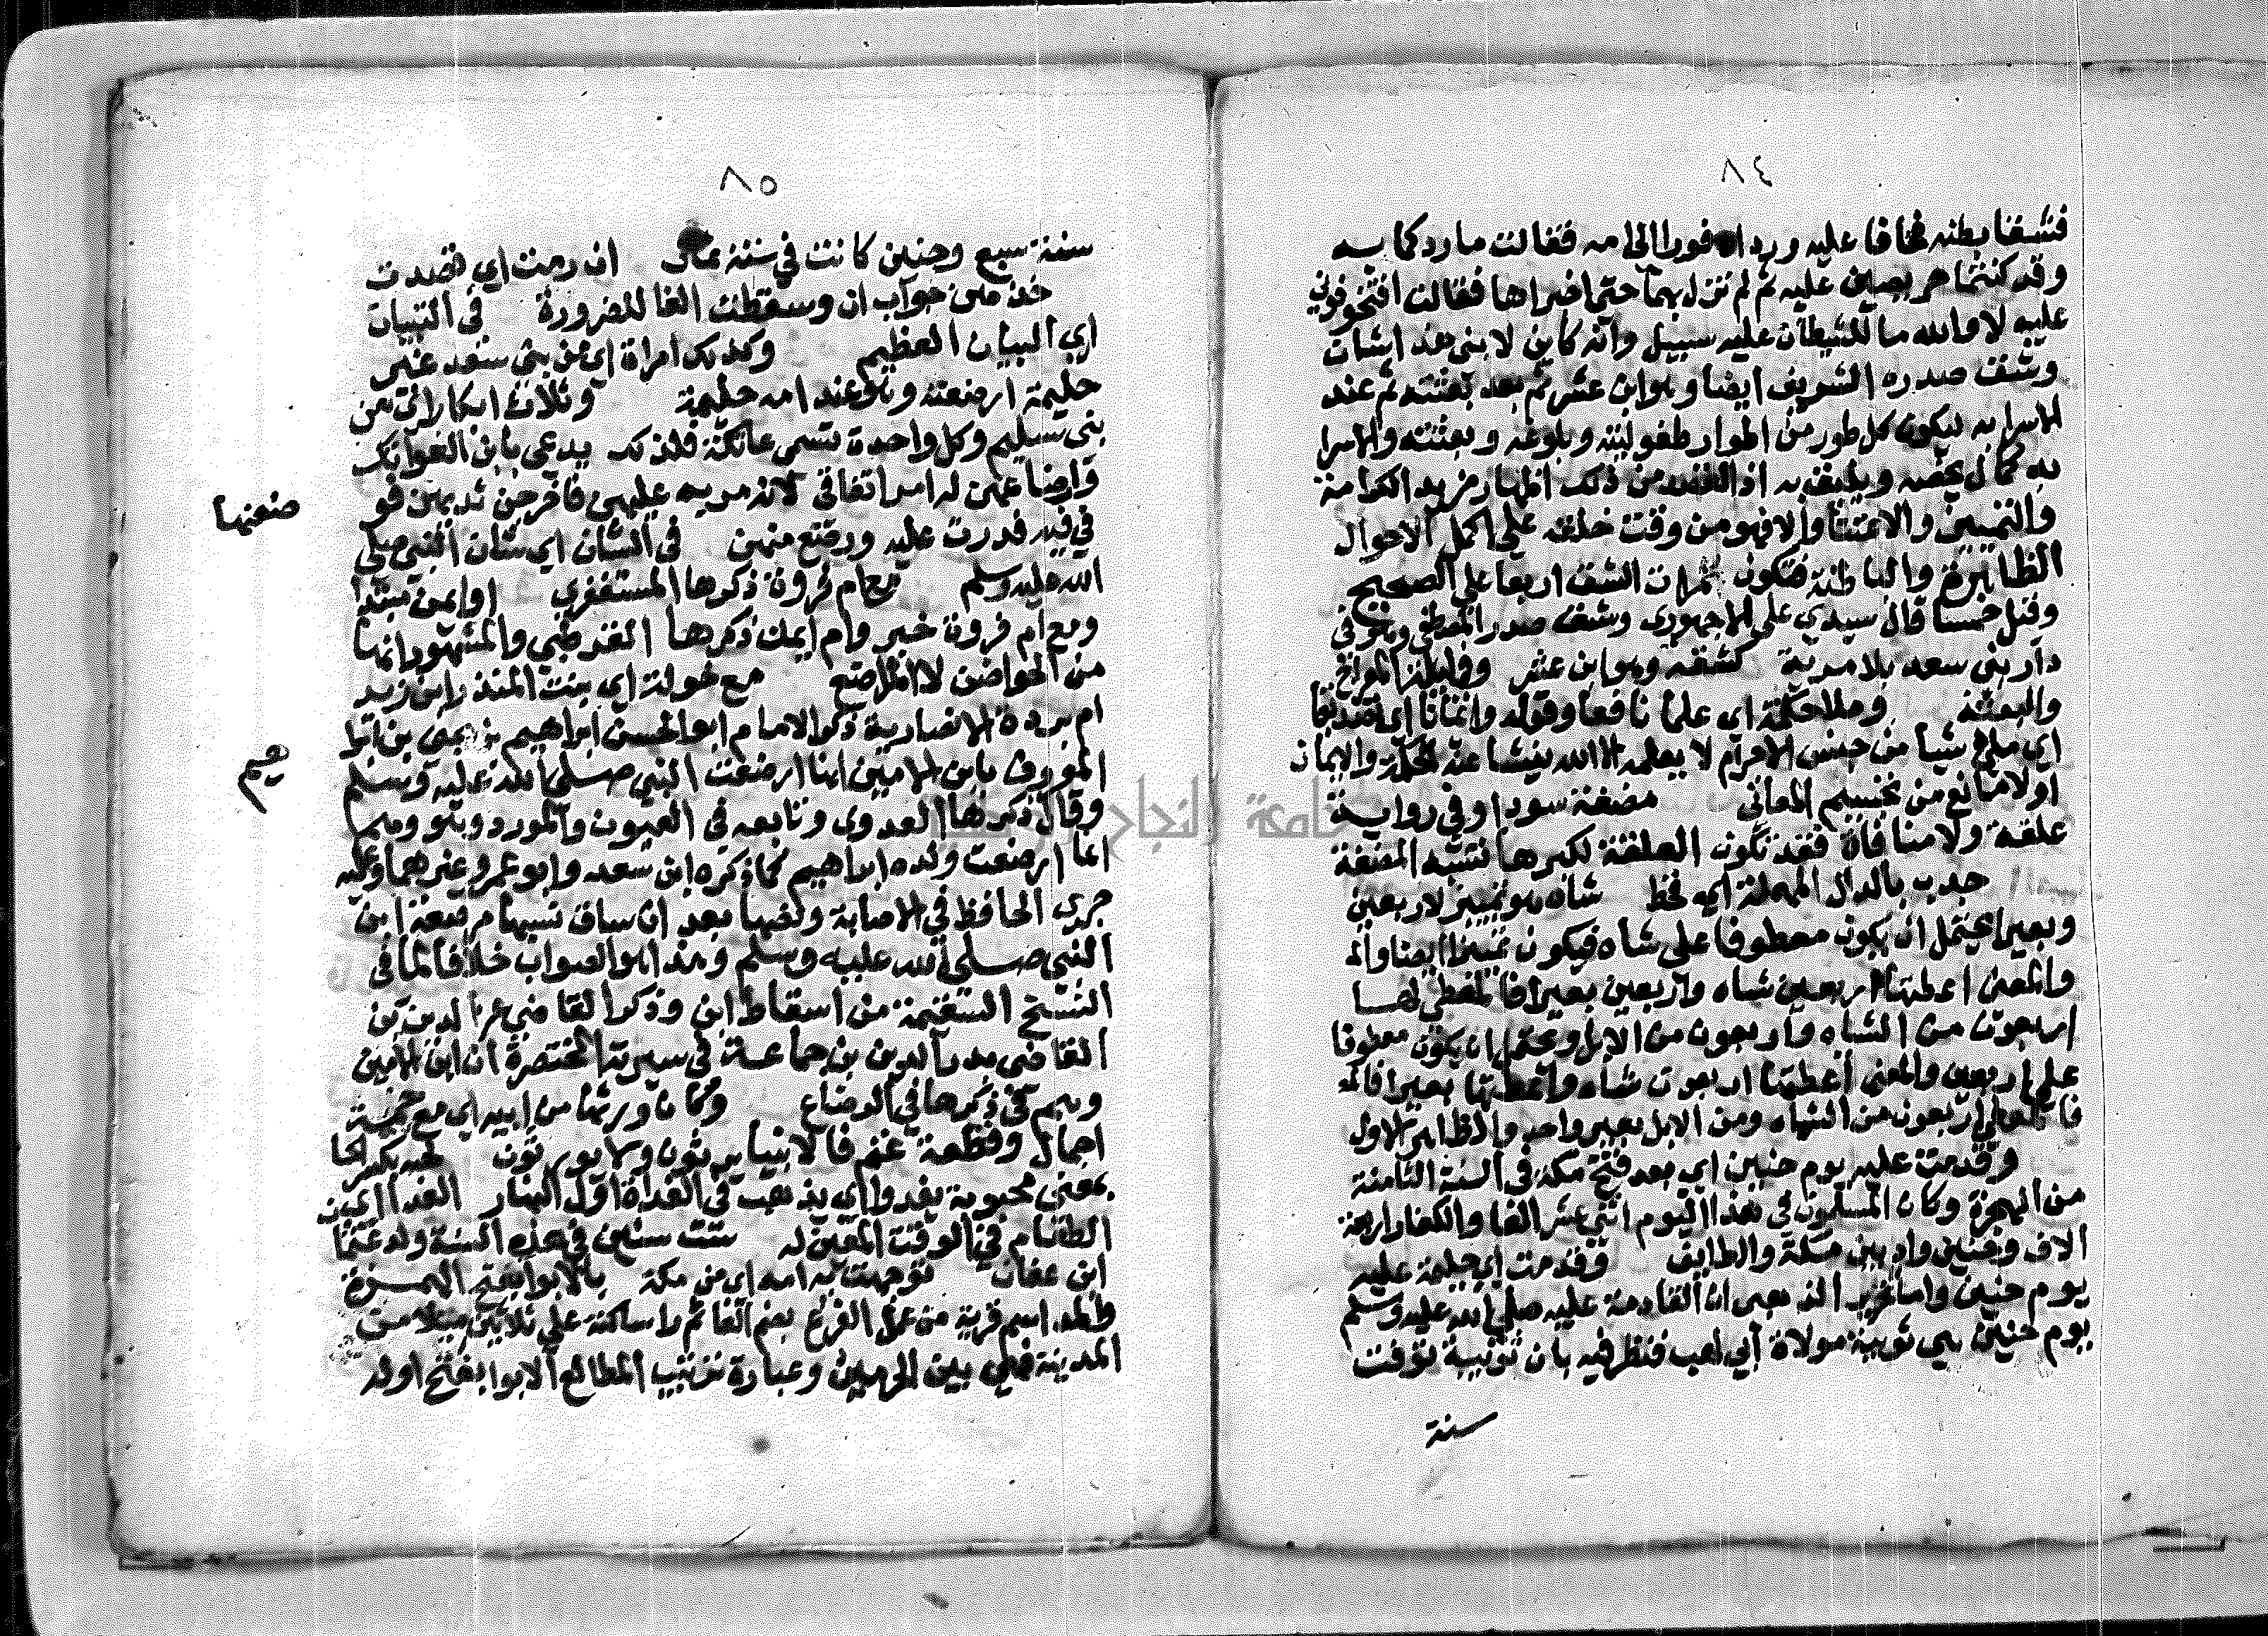 ٨٤
فشقا بطنه فخافا عليه ورداه فورا الى امه فقالت ما ردكما به
وقد كنتما حريصين عليه ثم لم تزل بهما حتى اخبراها فقالت افتخوفتي
عليه لا والله ما للشيطان عليه سبيل وانه كاين لابني هذا شان
وشق صدره الشريف ايضا وهو ابن عشر ثم بعد بعثته ثم عند
الاسرا به ليكون كل طور من اطوار طفوليته وبلوغه وبعثته والاسرا
به كمال يخصه ويليق به اذ القصد من ذلك اظهار مزيد الكرامة
والتمييز والاعتنا والا فهو من وقت خلقه على اكمل الاحوال
الظاهرة والباطنة فتكون مرات الشق اربعا على الصحيح
وقيل خمسا قال سيدي على الاجهوري وشق صدر المصطفى وهو في
دار بني سعد بلا مرية كشقه وهو ابن عشر وفي ليلة المعراج
والبعثة وملا حكمة اي علما نافعا وقوله وايمانا اي تصديقا
اي ملئ شيا من جنس الاجرام لا يعلمه الا الله ينشا عنه الحكمة والايمان
اولا مانع من تجسيم المعاني مضغة سودا وفي رواية
علقة ولا منافاة فقد تكون العلقة لكبرها تشبه المضغة
جدب بالدال المهملة اي قحط شاه هو تمييز لاربعين
وبعيرا يحتمل ان يكون معطوفا على شاه فيكون تمييزا ايضا
والمعنى اعطتها اربعين شاه واربعين بعيرا فالمعطى لها
اربعون من الشاه واربعون من الابل ويحتمل ان يكون معطوفا
على اربعين والمعنى أعطتها اربعون شاه واعطتها بعيرا
فالمعطى اربعون من الشاه ومن الابل بعير واحد والظاهر الاول
وقدمت عليه يوم حنين اي بعد فتح مكة في السنة الثامنة
من الهجرة وكان المسلمون في هذا اليوم اثني عشر الفا والكفار اربعة
الاف وحنين واد بين مكة والطايف وقدمت اي حليمة عليه
يوم حنين واما الذهبى ان القادمة عليه صلى الله عليه وسلم
يوم حنين هي ثويبة مولاة أبي لهب فنظر فيه بان ثويبة توفت
سنة
٨٥
سنة سبع وحنين كانت في سنة ثمان ان رمت اي قصدت
حذف من جواب ان وسقطت الفا للضرورة في التبيان
اي البيان العظيم وكذلك امراة اي من بني سعد غير
حليمة ارضعته وهو عند امه حليمة وثلاث ابكارا اي من
بني سليم وكل واحدة تسمى عاتكة فلذلك يدعى بابن العواتك
وارضاعهن له امر اتفاقي لانه مر به عليهن فاخرجن ثديهن
في فيه فدرت عليه ورضع منهن في الشان اي شان النبي صلى
الله عليه وسلم مع ام فروة ذكرها المستغفري او ايمن مبتدا
ومع ام فروة خبر وام ايمن ذكرها القرطبي والمشهور انها
من الحواضن لا المراضع مع خولة اي بنت المنذر ابن زيد
ام بردة الانصارية ذكر الامام ابو الحسن ابراهيم بن يحيى بن ابرا
هيم
المعروف بابن الامين انها ارضعت النبي صلى الله عليه وسلم
وقال ذكرها العدوى وتابعه في العيون والمورد وهو وهم
انما ارضعت ولده ابراهيم كما ذكره ابن سعد وابو عمرو غيرهما وعليه
جرى الحافظ في الاصابة ونصها بعد ان ساق نسبها مرضعة ابن
النبي صلى الله عليه وسلم وهذا هو الصواب خلافا لما في
النسخ السقيمة من اسقاط ابن وذكر القاضي عز الدين بن
القاضي بدر الدين بن جماعة في سيرته المختصرة ان ابن الامين
وهم في ذكرها في الرضاع وكانا ورثها من ابيه اي مع خمسة
اجمال وقطعة غنم فالانبيا يرثون ولا يورثون
بمعنى محبوبة يغدوا اي يذهب في الغداة اول النهار الغدا اي
الطعام في الوقت المعين له ست سنين في هذه السنة ولد عثمان
ابن عفان توجهت به امه اي من مكة بالابوا بفتح الهمزة
اسم قرية من عمل الفرع بضم الفا ثم را ساكنة على ثلاثين ميلا من
المدينة فهي بين الحرمين وعبارة ترتيب المطالع الابوا بفتح اوله